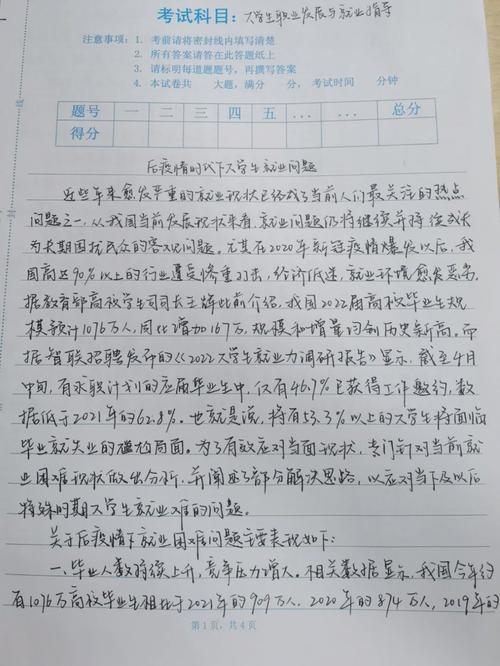 考试科目：大学生职业发展与就业指导
注意事项：1. 考前请将密封线内填写清楚
2. 所有答案请答在此答题纸上
3. 请标明每道题题号，再撰写答案
4. 本试卷共 大题，满分 分，考试时间 分钟
题号 一 二 三 四 五 … … 总分
得分
后疫情时代下大学生就业问题
近些年来愈发严重的就业现状已经成了当前人们最关注的热点
问题之一，从我国当前发展现状来看，就业问题仍将继续并将演变成
为长期困扰民众的客观问题。尤其在2020年新冠疫情爆发以后，我
国高达90%以上的行业遭受惨重打击，经济低迷，就业环境愈发恶劣。
据教育部高校学生司司长王辉此前介绍，我国2022届高校毕业生规
模预计1076万人，同比增加167万，规模和增量均创历史新高。而
据智联招聘发布的《2022大学生就业力调研报告》显示，截至4月
中旬，有求职计划的应届毕业生中，仅有46.7%已获得工作邀约，数
据低于2021年的62.8%。也就是说，将有53.3%以上的大学生将面临
毕业就失业的尴尬局面。为了有效应对当面现状，专门针对当前就
业困难现状做出分析，并阐述了部分解决思路，以应对当下及以后
特殊时期大学生就业难的问题。
关于后疫情下就业困难问题主要表现如下：
一、毕业人数持续上升，竞争压力增大。相关数据显示，我国今年约
有1076万高校毕业生相比于2021年的909万人，2020年的874万人，2019年的
第1页，共4页